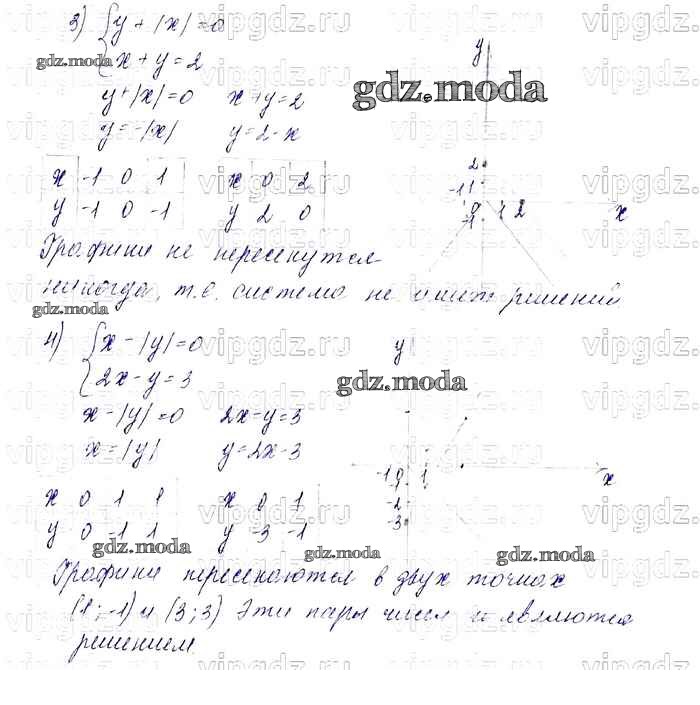 3) { y + |x| = 0
x + y = 2
gdz.moda
y + |x| = 0 x + y = 2
y = -|x| y = 2 - x
gdz.moda
x -1 0 1 x 0 2
y -1 0 -1 y 2 0
y
2
-1 1
0 1 2 x
-1
Графики не пересекутся
никогда, т.е. система не имеет решений
gdz.moda
4) { x - |y| = 0
2x - y = 3
x - |y| = 0 2x - y = 3
x = |y| y = 2x - 3
gdz.moda
x 0 1 1 x 0 1
y 0 -1 1 y -3 -1
y
-1 0 1 x
-1
-2
-3
gdz.moda gdz.moda gdz.moda
Графики пересекаются в двух точках
(1; -1) и (3; 3) Эти пары чисел и являются
решением
vipgdz.ru